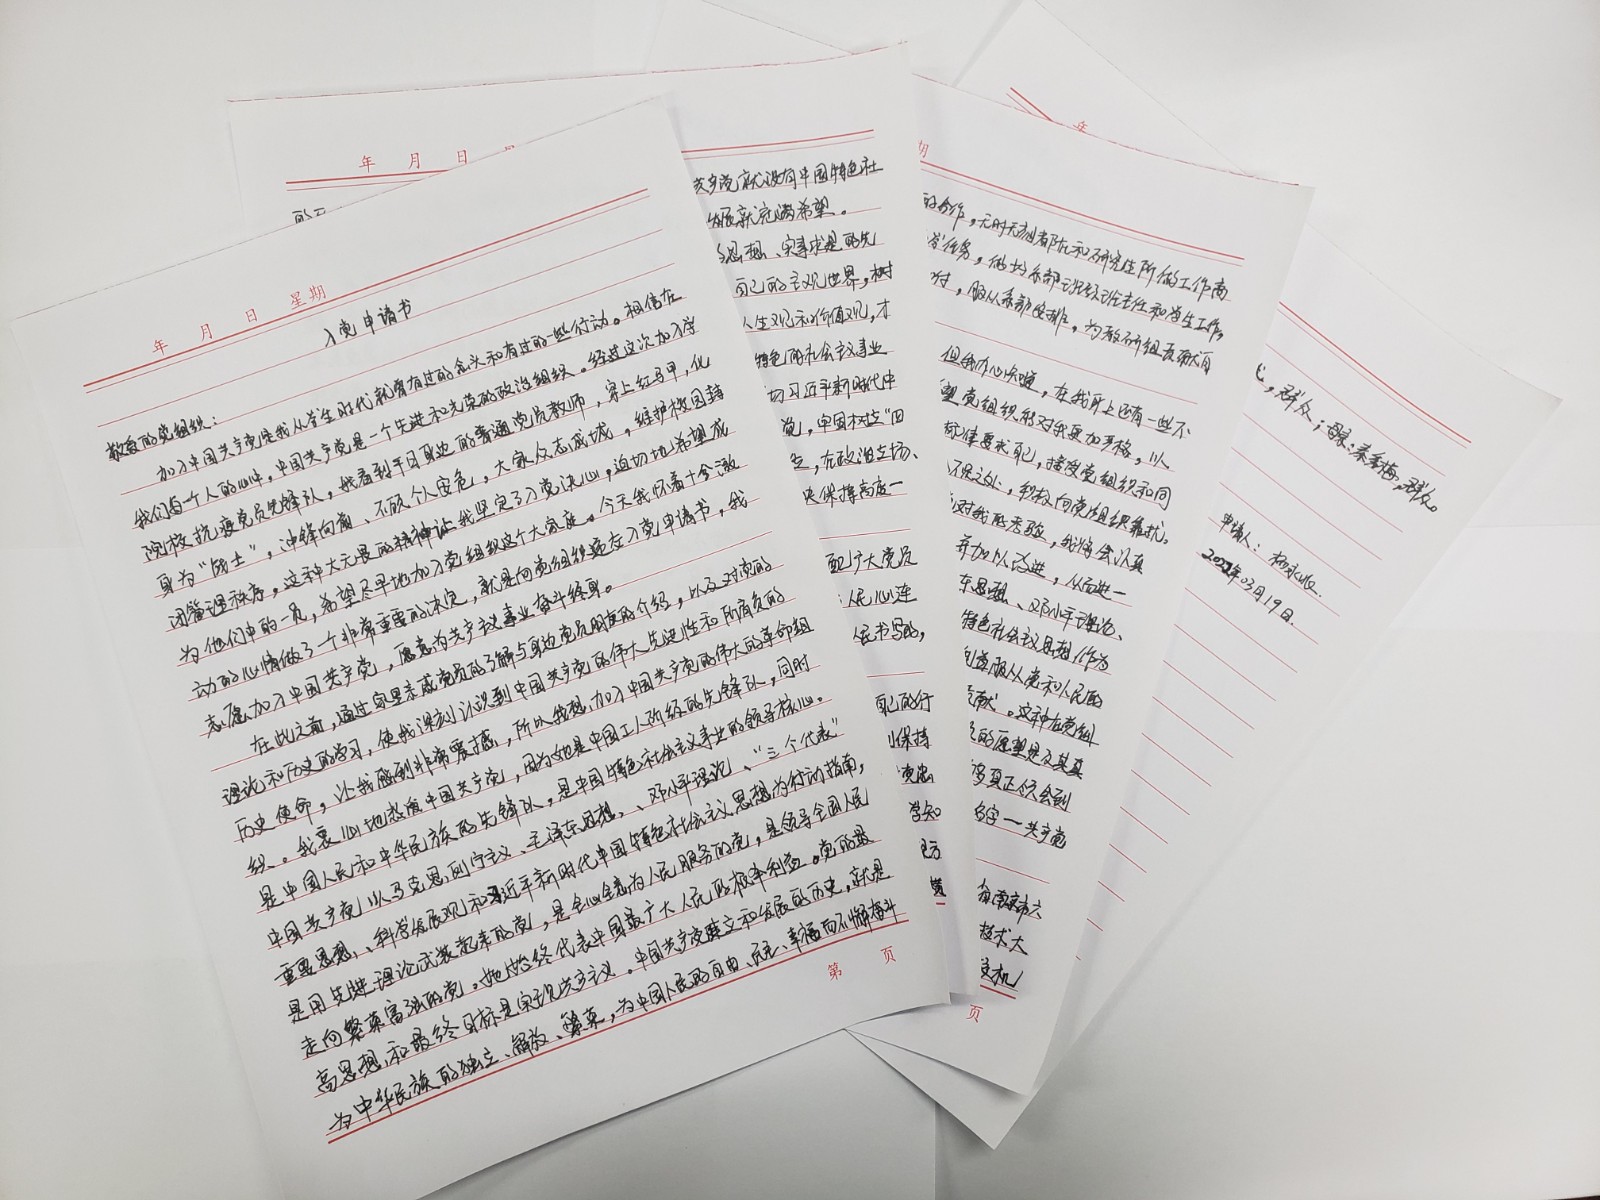 年 月 日 星期
入党申请书
敬爱的党组织：
加入中国共产党是我从学生时代就有过的念头和有过的一些行动。相信在
我们每一个人的心中，中国共产党是一个先进和光荣的政治组织。经过这次加入学
院校抗疫党员先锋队，我看到平日身边的普通党员教师，穿上红马甲，化
身为“战士”，冲锋向前、不顾个人安危，大家众志成城，维护校园封
闭管理秩序。这种大无畏的精神让我坚定了入党决心，迫切地希望成
为他们中的一员，希望尽早地加入党组织这个大家庭。今天我怀着十分激
动的心情做了一个非常重要的决定，就是向党组织递交入党申请书，我
志愿加入中国共产党，愿意为共产主义事业奋斗终身。
在此之前，通过家里亲戚党员的了解与身边党员朋友的介绍，以及对党的
理论和历史的学习，使我深刻认识到中国共产党的伟大先进性和所肩负的
历史使命，让我感到非常震撼，所以我想加入中国共产党的伟大的革命组
织。我衷心地热爱中国共产党，因为她是中国工人阶级的先锋队，同时
是中国人民和中华民族的先锋队，是中国特色社会主义事业的领导核心。
中国共产党以马克思列宁主义、毛泽东思想、邓小平理论、“三个代表”
重要思想、科学发展观和习近平新时代中国特色社会主义思想为行动指南，
是用先进理论武装起来的党，是全心全意为人民服务的党，是领导全国人民
走向繁荣富强的党。她始终代表中国最广大人民的根本利益。党的最
高思想和最终目标是实现共产主义。中国共产党建立和发展的历史，就是
为中华民族的独立、解放、繁荣，为中国人民的自由、民主、幸福而不懈奋斗
第 页
年 月 日
共产党就没有中国特色社
发展就充满希望。
思想、实事求是的先
自己的主观世界，树
人生观和价值观，才
特色的社会主义事业
切习近平新时代中
党，中国树立“四
在政治立场、
央保持高度一
广大党员
人民心连
民书写的，
己的行
保持
学知
期
的合作，无时无刻都在和研究生所做的工作商
任务，做好系部班级班主任和学生工作，
付，服从系部安排，为教研组贡献自
但我内心知道，在我身上还有一些不
望党组织能对我更加严格，以
标准要求自己，接受党组织和同
不足之处，积极向党组织靠拢。
对我的考验，我将会认真
并加以改进，从而进一
东思想、邓小平理论、
特色社会主义思想作为
服从党和人民的
献。这种在党组
的愿望是及其真
真正体会到
字—共产党
南京市六
技术大
页
年
，群众；母亲：秦季梅，群众。
申请人：
2022年03月19日.